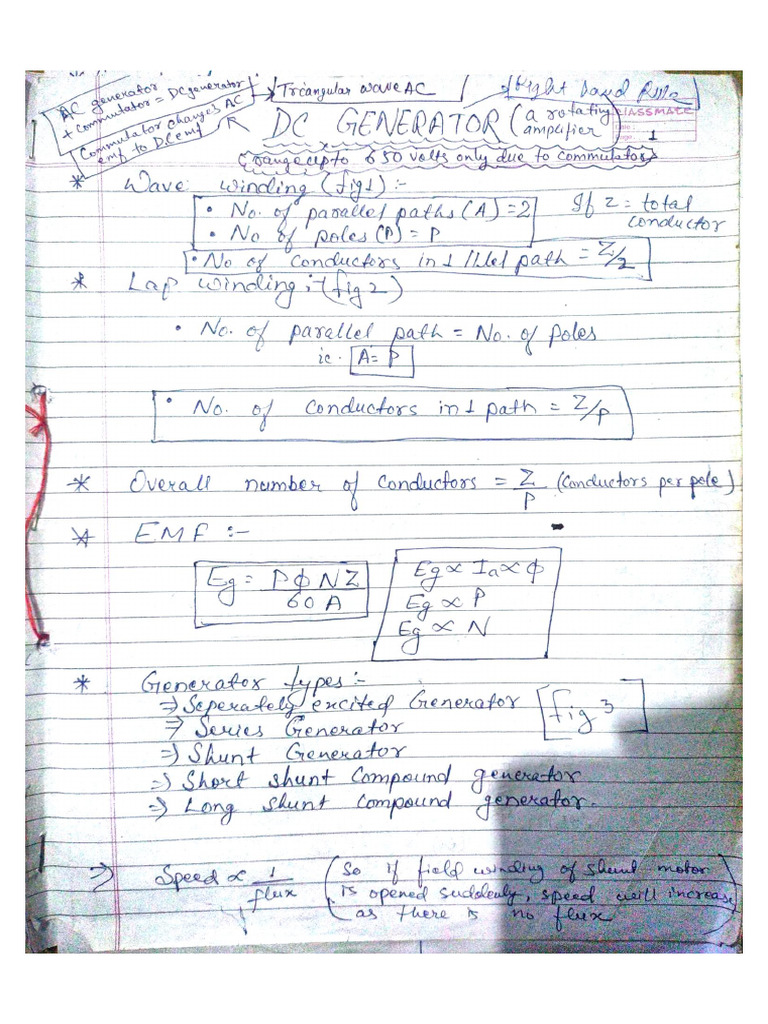 AC generator
+ Commutator = DC generator
Commutator changes AC
emf to DC emf
→ Triangular wave AC
Right hand Rule
CLASSMATE
Page 1
DC GENERATOR (a rotating
amplifier)
(range upto 650 volts only due to commutator)
* Wave winding (fig 1) :-
• No. of parallel paths (A) = 2
• No of poles (P) = P
• No of conductors in 1 llel path = Z/2
If Z = total
conductor
* Lap winding :- (fig 2)
• No. of parallel path = No. of poles
ie. A = P
• No. of conductors in 1 path = Z/P
* Overall number of conductors = Z/P (Conductors per pole)
* EMF :-
Eg = PΦNZ/60A
Eg ∝ Ia ∝ Φ
Eg ∝ P
Eg ∝ N
* Generator types :-
⇒ Seperately excited Generator
⇒ Series Generator
⇒ Shunt Generator
⇒ Short shunt compound generator
⇒ Long shunt compound generator.
fig 3
⇒ Speed ∝ 1/flux (So if field winding of shunt motor
is opened suddenly, speed will increase
as there is no flux)